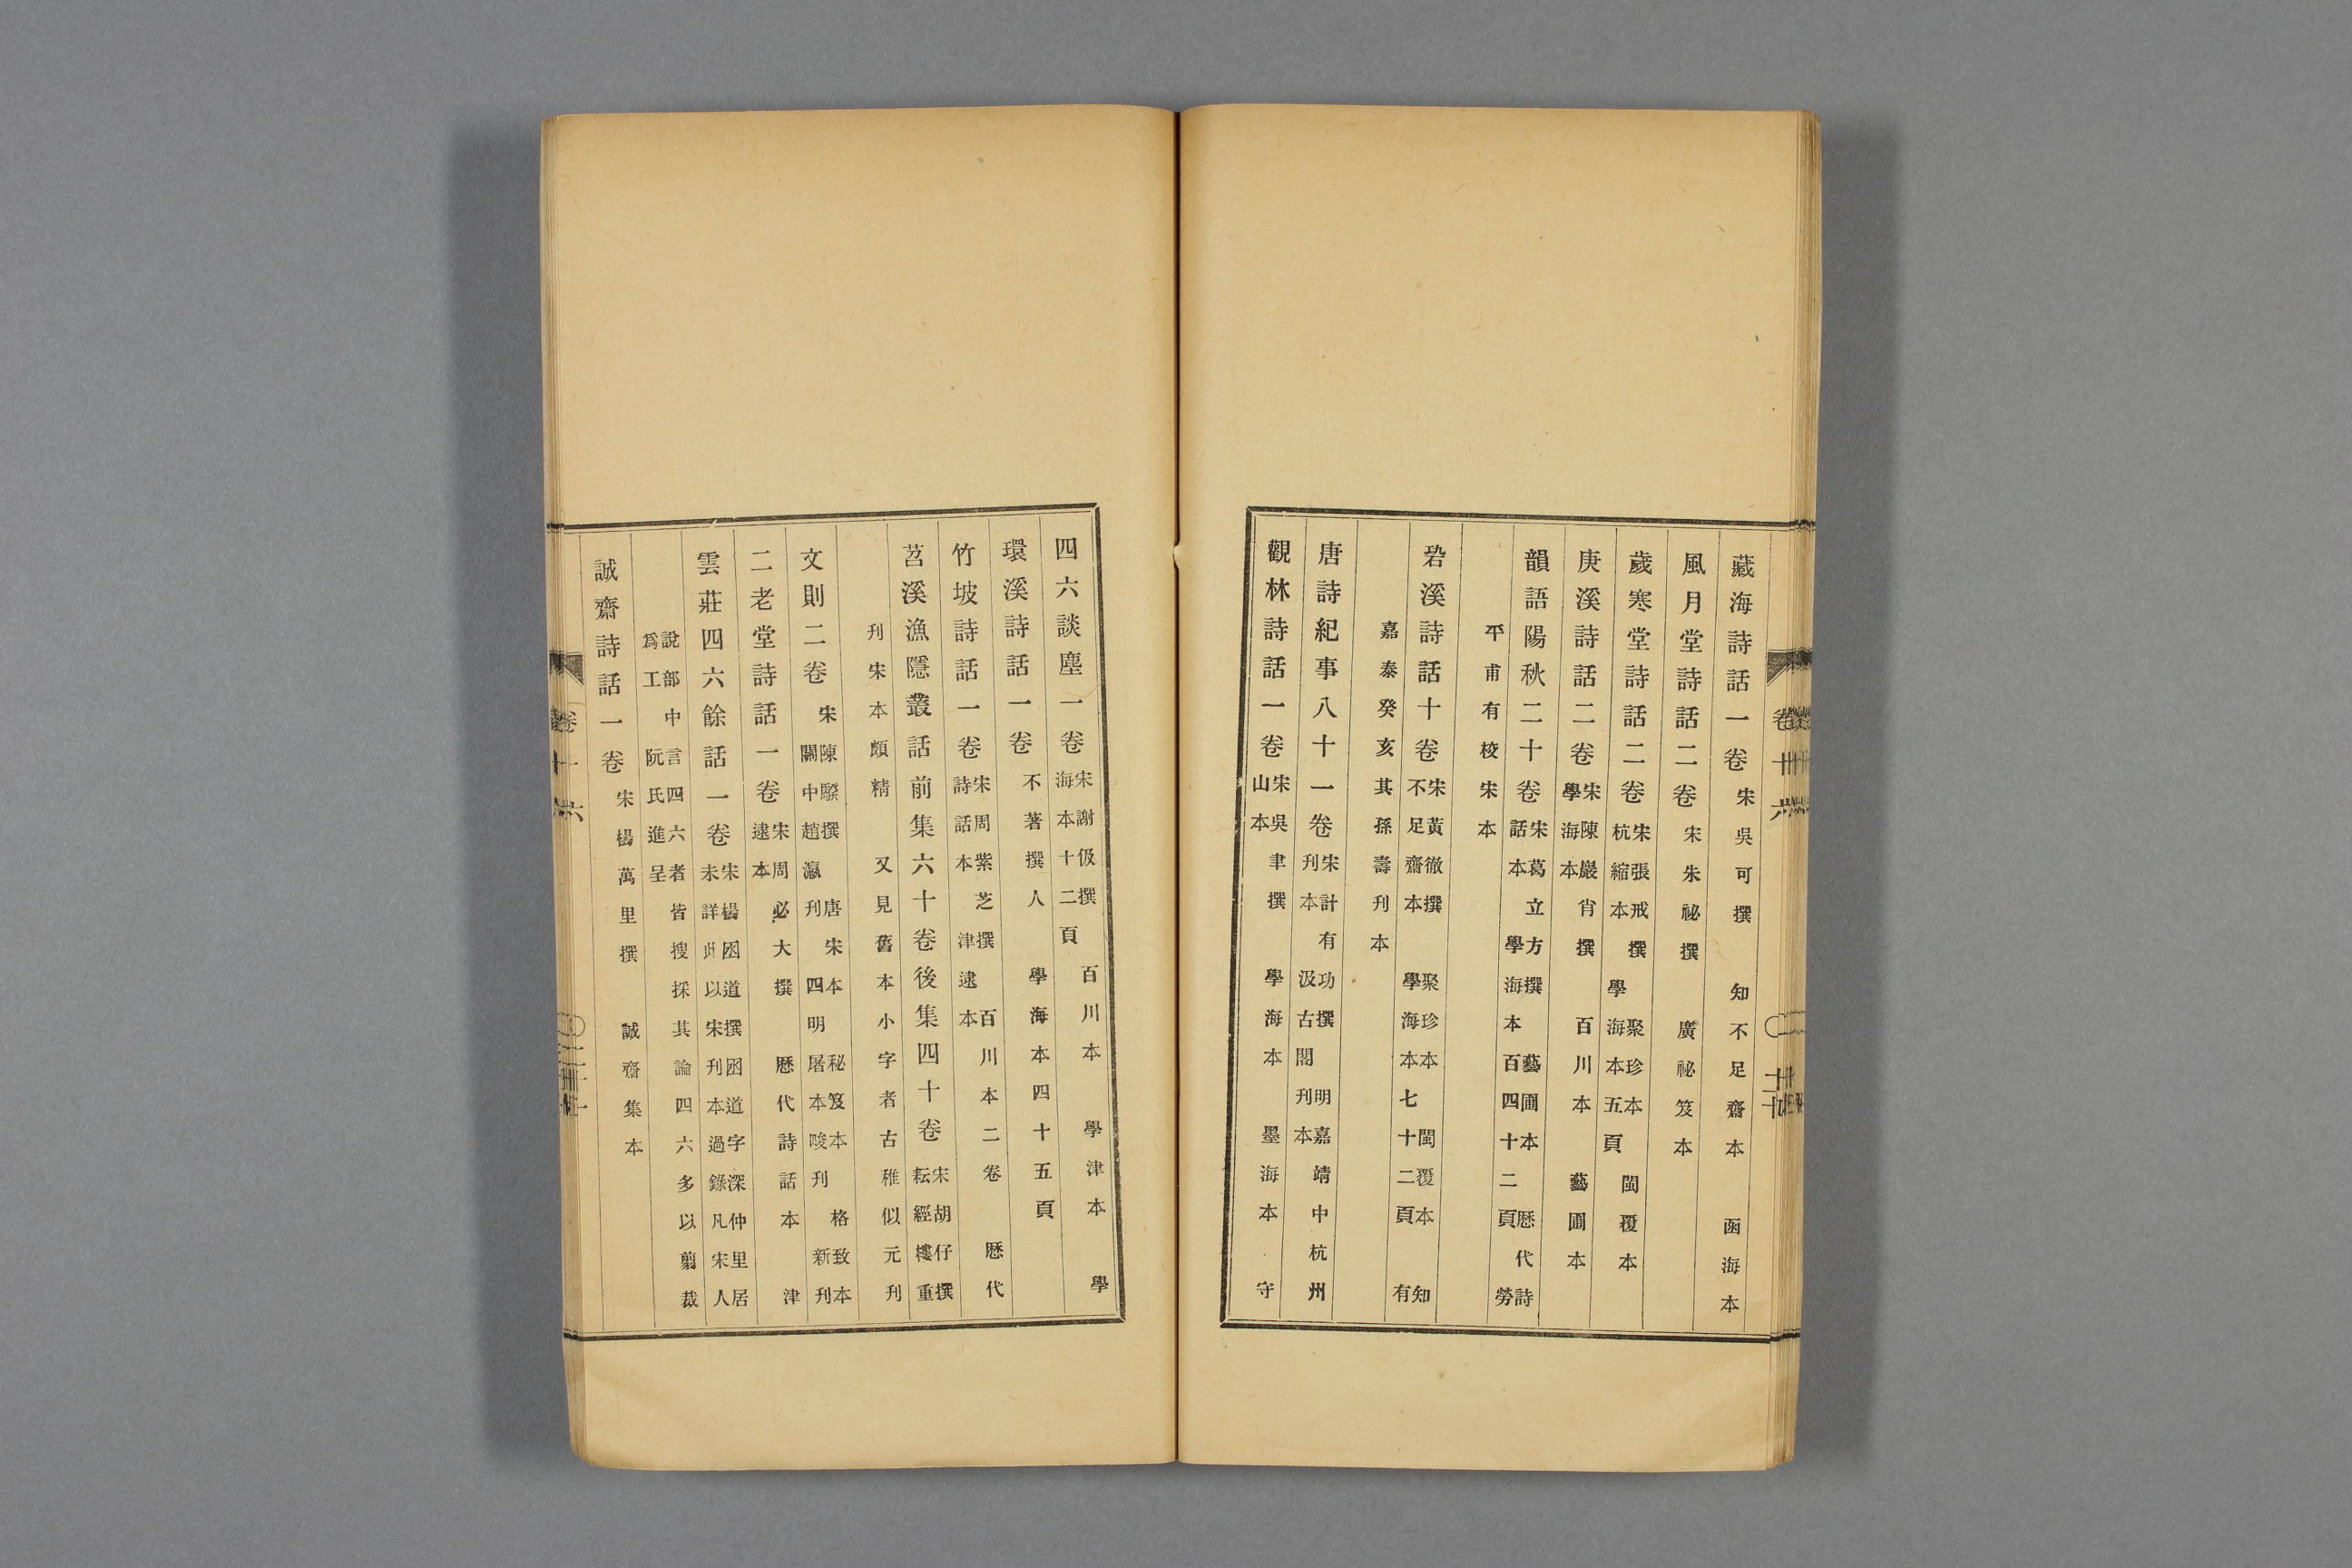 藏海詩話一卷 宋吳可撰 知不足齋本 函海本
風月堂詩話二卷 宋朱祕撰 廣祕笈本
歲寒堂詩話二卷 宋張戒撰 聚珍本 閩覆本 杭縮本 學海本五頁
庚溪詩話二卷 宋陳巖肖撰 百川本 藝圃本 學海本
韻語陽秋二十卷 宋葛立方撰 藝圃本 歷代詩話本 學海本百四十二頁 勞
平甫有校宋本
䂬溪詩話十卷 宋黃徹撰 聚珍本 閩覆本 知不足齋本 學海本七十二頁 有
嘉泰癸亥其孫壽刊本
唐詩紀事八十一卷 宋計有功撰 明嘉靖中杭州刊本 汲古閣刊本
觀林詩話一卷 宋吳聿撰 學海本 墨海本 守山本
四六談塵一卷 宋謝伋撰 百川本 學津本 學海本十二頁
環溪詩話一卷 不著撰人 學海本四十五頁
竹坡詩話一卷 宋周紫芝撰 百川本二卷 歷代詩話本 津逮本
苕溪漁隱叢話前集六十卷後集四十卷 宋胡仔撰 耘經樓重
刊宋本頗精 又見舊本小字者古稚似元刊
文則二卷 宋陳騤撰 唐宋本 秘笈本 格致本 關中趙瀛刊 四明屠本畯刊 新刊
二老堂詩話一卷 宋周必大撰 歷代詩話本 津逮本
雲莊四六餘話一卷 宋楊囦道撰囦道字深仲里居未詳此以宋刊本過錄凡宋人
說部中言四六者皆搜採其論四六多以翦裁爲工 阮氏進呈
誠齋詩話一卷 宋楊萬里撰 誠齋集本
卷十六